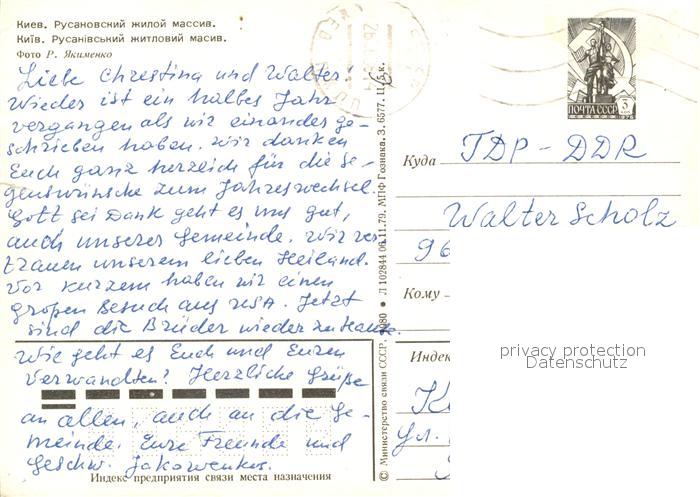 Киев. Русановский жилой массив.
Київ. Русанівський житловий масив.
Фото Р. Якименко
Liebe Christina und Walter!
Wieder ist ein halbes Jahr
vergangen als wir einander ge-
schrieben haben. Wir danken
Euch ganz herzlich für die Se-
genswünsche zum Jahreswechsel.
Gott sei Dank geht es uns gut,
auch unserer Gemeinde. Wir ver-
trauen unserem lieben Heiland.
Vor kurzem haben wir einen
großen Besuch aus USA. Jetzt
sind die Brüder wieder zu Hause.
Wie geht es Euch und Euren
Verwandten? Herzliche Grüße
an allen, auch an die Ge-
meinde. Eure Freunde und
Geschw. Jakowenkos.
Индекс предприятия связи места назначения
© Министерство связи СССР, 1980 ● Л 102844 06.11.79. МПФ Гознака. З. 6577. Ц. 5 к.
ПОЧТА СССР 3 КОП
1976
Куда ГДР - DDR
Walter Scholz
96
Кому
Индекс
privacy protection
Datenschutz
ул.